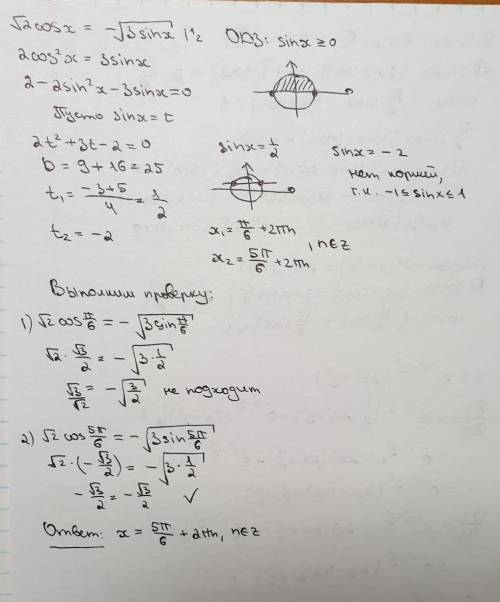 √2 cosx = -√(3 sinx) |↑2   ОДЗ: sinx ≥ 0
2cos²x = 3sinx
2 - 2sin²x - 3sinx = 0
Пусть sinx = t
2t² + 3t - 2 = 0   sinx = 1/2   sinx = -2
D = 9 + 16 = 25   нет корней,
t₁ = (-3+5)/4 = 1/2   т.к. -1 ≤ sinx ≤ 1
t₂ = -2   x₁ = π/6 + 2πn
x₂ = 5π/6 + 2πn , n∈Z
Выполним проверку:
1) √2 cos π/6 = -√(3 sin π/6)
√2 · √3/2 = -√(3 · 1/2)
√3/√2 = -√(3/2) не подходит
2) √2 cos 5π/6 = -√(3 sin 5π/6)
√2 · (-√3/2) = -√(3 · 1/2)
-√3/2 = -√3/2 ✓
Ответ: x = 5π/6 + 2πn, n∈Z